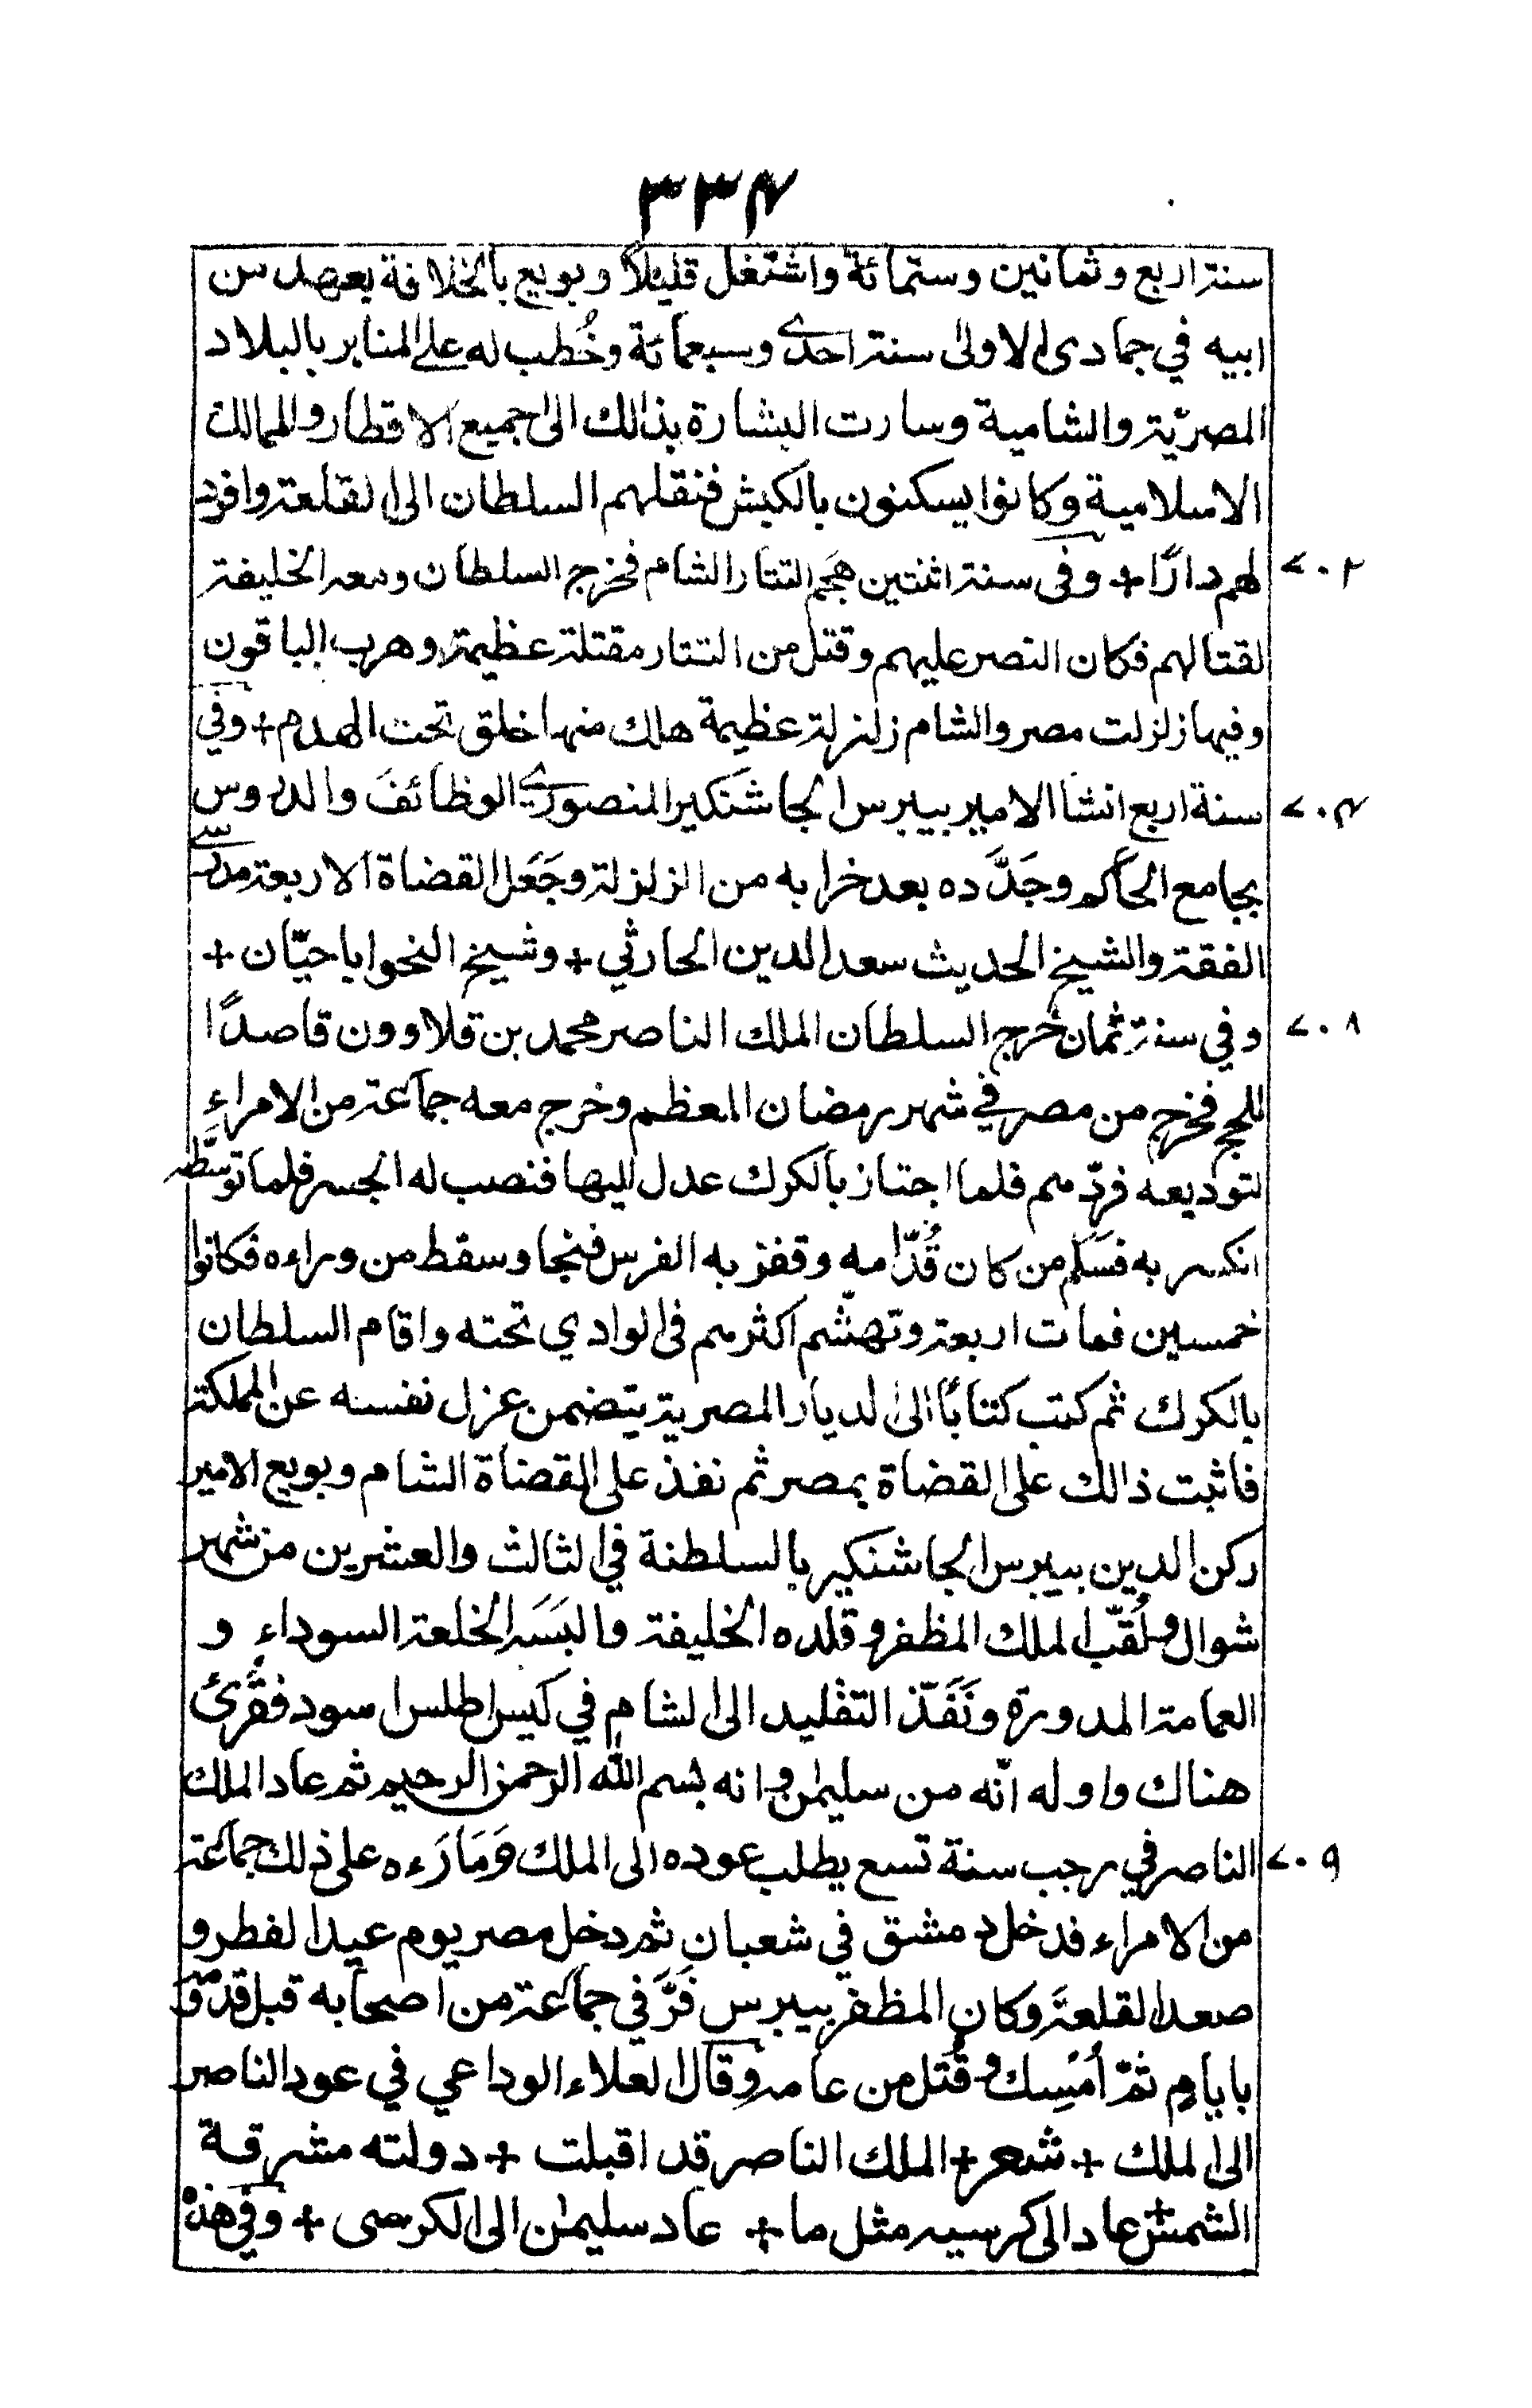 ٣٣٤
سنة اربع وثمانين وستمائة واشتغل قليلاً وبويع بالخلافة بعهد من
ابيه في جمادى الاولى سنة احدى وسبعمائة وخُطب له على المنابر بالبلاد
المصريّة والشامية وسارت البشارة بذالك الى جميع الاقطار والممالك
الاسلامية وكانوا يسكنون بالكبش فنقلهم السلطان الى القلعة وافرد
لهم دارًا + وفي سنة اثنتين هَجَم التتار الشام فخرج السلطان ومعه الخليفة ٧٠٢
لقتالهم فكان النصر عليهم وقتل من التتار مقتلة عظيمة وهرب الباقون
وفيها زلزلت مصر والشام زلزلة عظيمة هلك منها خلق تحت الهدم + وفي
سنة اربع انشأ الامير بيبرس الجاشنكير المنصوري الوظائفَ والدروس ٧٠٤
بجامع الحاكم وجَدَّده بعد خرابه من الزلزلة وجَعَل القضاة الاربعة مدرسي
الفقة والشيخ الحديث سعد الدين الحارثي + وشيخ النحو ابا حيّان +
وفي سنة ثمان خرج السلطان الملك الناصر محمد بن قلاوون قاصدًا ٧٠٨
للحج فخرج من مصر في شهر رمضان المعظم وخرج معه جماعة من الامراءِ
لتوديعه فردّهم فلما اجتاز بالكرك عدل اليها فنصب له الجسر فلما توسَّطه
انكسر به فسَلَم من كان قُدّامه وقفز به الفرس فنجا وسقط من وراءه فكانوا
خمسين فمات اربعة وتهشّم اكثرهم في الوادي تحته واقام السلطان
بالكرك ثم كتب كتابًا الى الديار المصرية يتضمن عزل نفسه عن المملكة
فاثبت ذالك على القضاة بمصر ثم نفذ على القضاة الشام وبويع الامير
ركن الدين بيبرس الجاشنكير بالسلطنة في الثالث والعشرين من شهر
شوال ولُقّب الملك المظفر وقلده الخليفة والبَسَه الخلعة السوداء و
العمامة المدورة ونَفّذ التقليد الى الشام في كيس اطلس اسود فقُرئ
هناك واوله انّه من سليمٰن وانه بسم الله الرحمن الرحيم ثم عاد الملك
الناصر في رجب سنة تسع يطلب عوده الى الملك وَمَارَءه على ذلك جماعة ٧٠٩
من الامراء فدخل دمشق في شعبان ثم دخل مصر يوم عيد الفطر و
صعد القلعةَ وكان المظفر بيبرس فَرَّ في جماعة من اصحابه قبل قدومه
بايام ثمّ اُمْسِك وقُتل من عامه وقال العلاء الوداعي في عود الناصر
الى الملك + شعر + الملك الناصر قد اقبلت + دولته مشرقة
الشمس + عاد الى كرسيه مثل ما + عاد سليمٰن الى الكرسى + وفي هذه